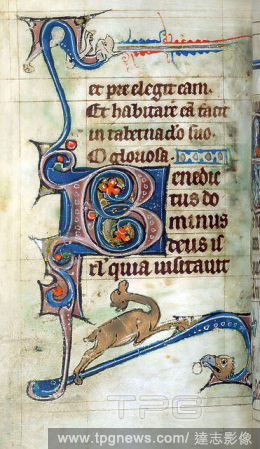 et pre elegit eam.
Et habitare eā facit
in tabernac̄lo suo.
O gloriosa.
Benedic
tus do
minus
deus is
rl' quia uisitauit
TPG
www.tpgnews.com/ 達志影像